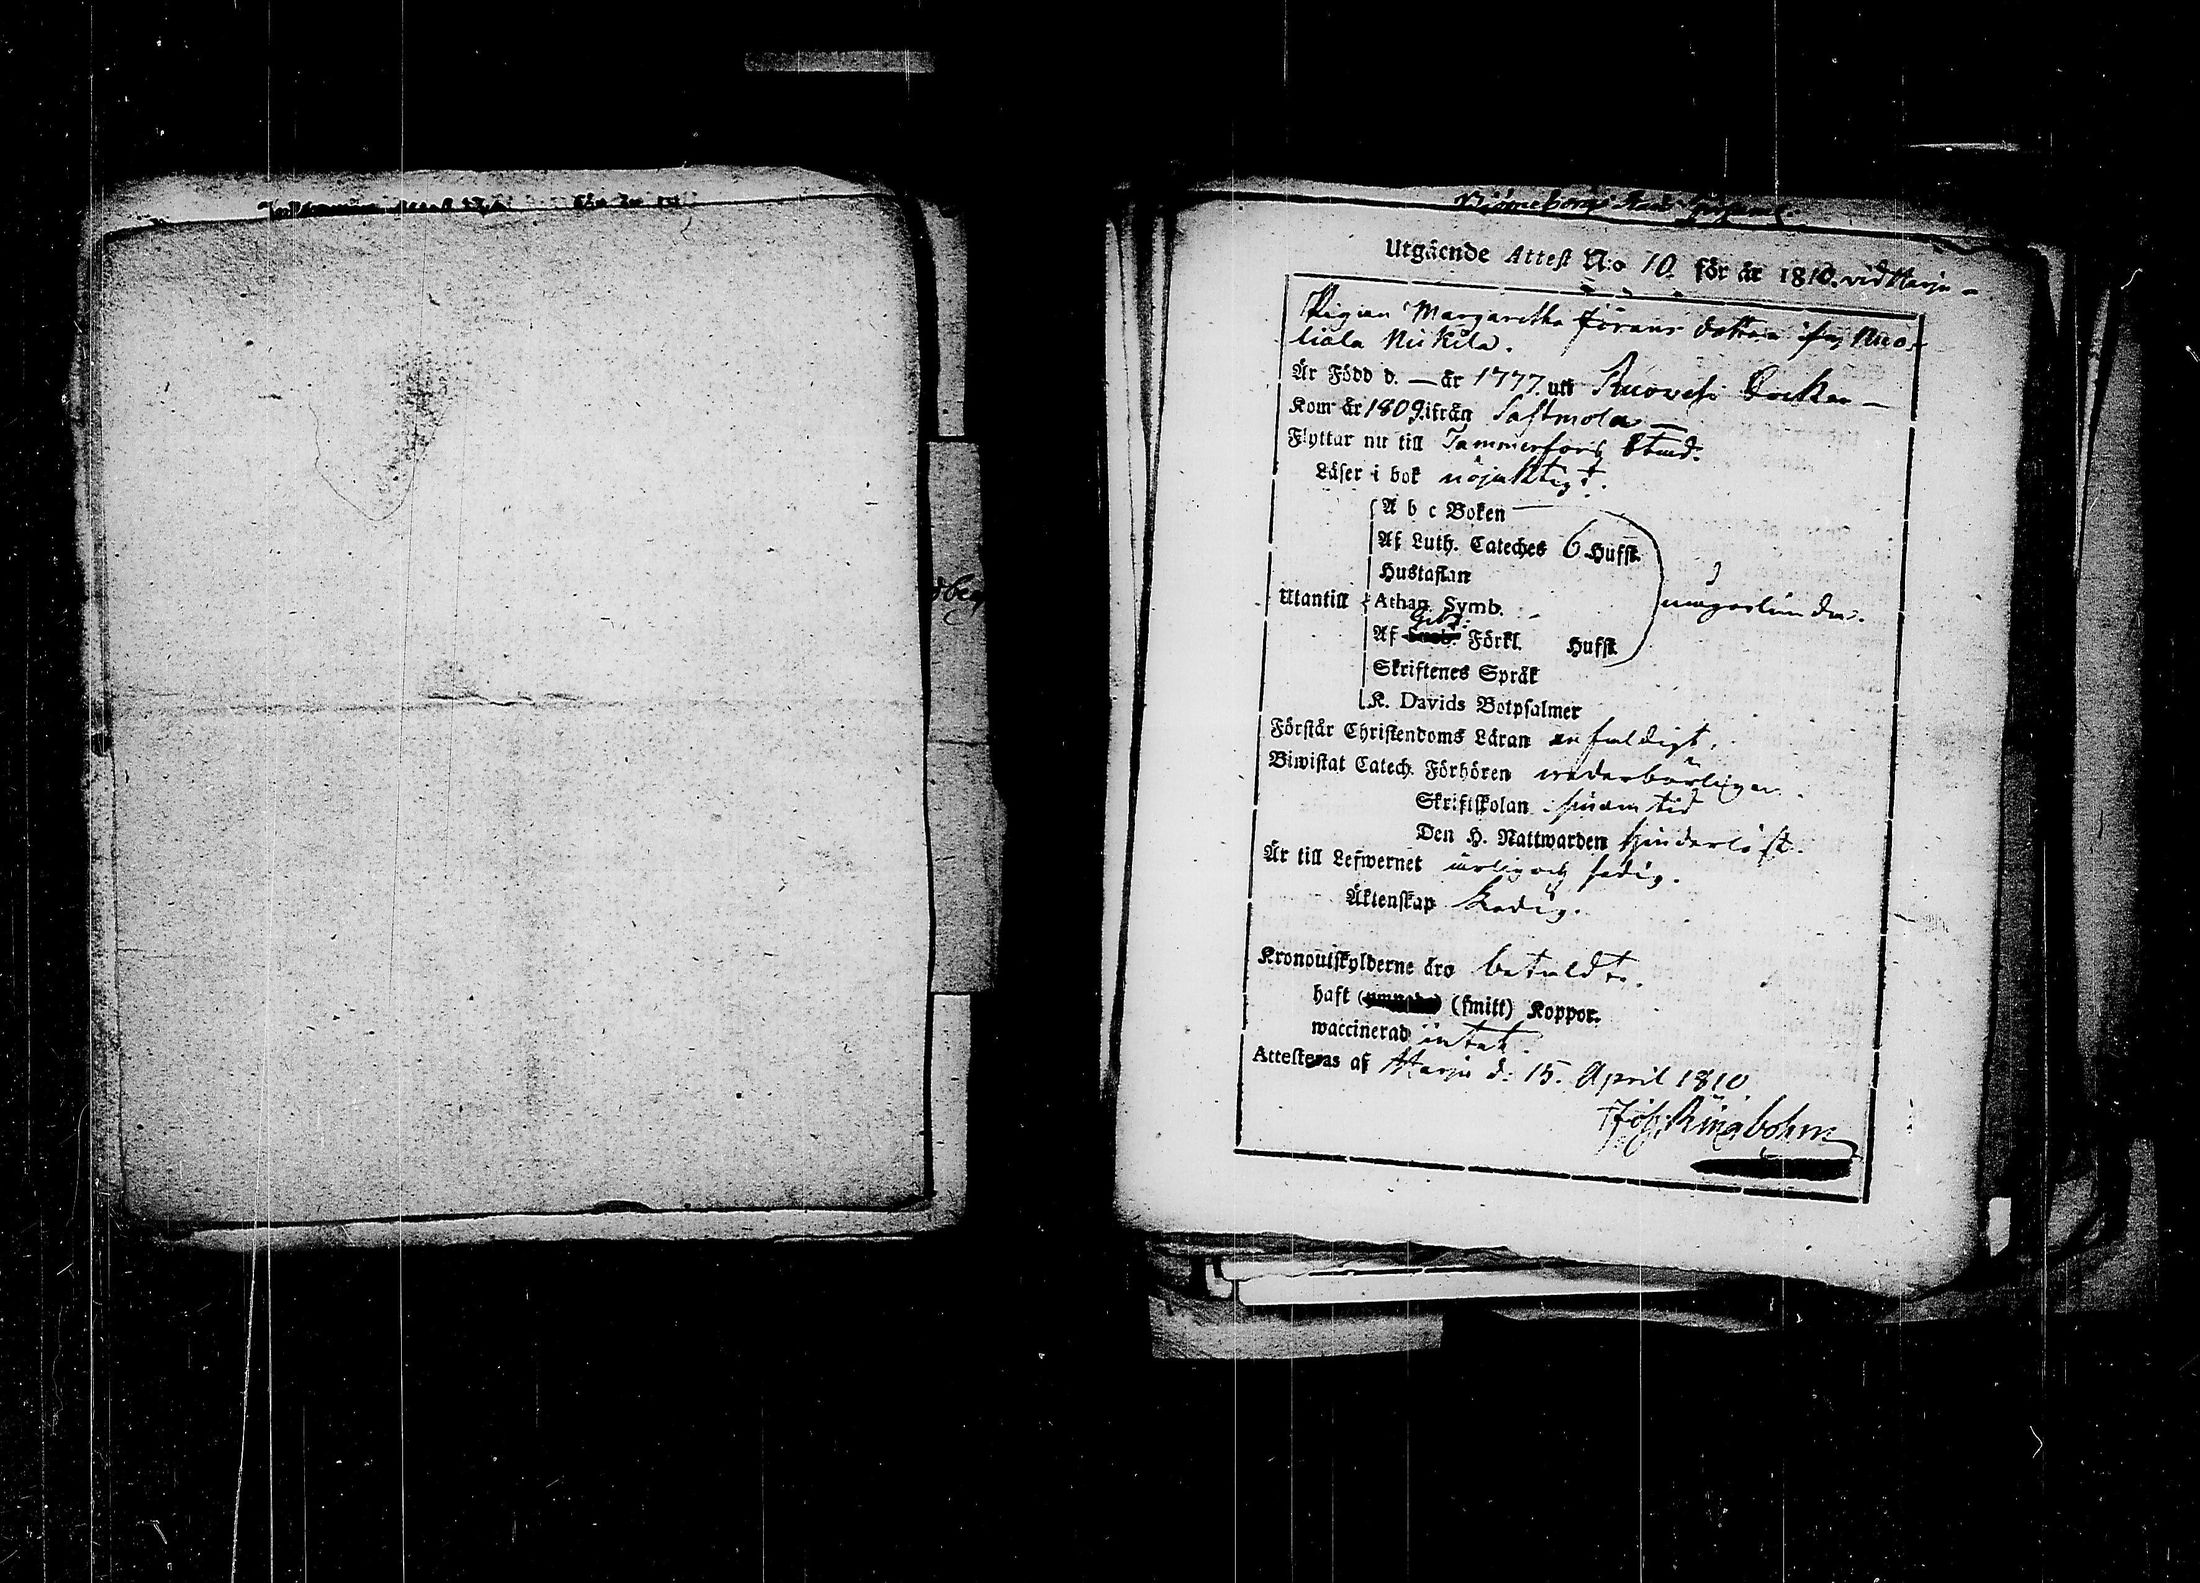 Utgående Attest N:o 10. för år 1810. vid Harju
Pigan Margaretha Jörans dotter ifrån Nuo-
liala Nickila.
Är Född d. — år 1777. uti Ruovesi Socken —
Kom år 1809. ifrån Sastmola —
Flyttar nu till Tammerfors Stad.
Läser i bok nöjaktigt.
A b c Boken
Af Luth. Cateches 6 Hufst.
Hustaflan
Utantill Athan. Symb. någorlunda.
Af Förkl. Hufst.
Skriftenes Språk
K. Davids Botpsalmer
Förstår Christendoms Läran enfaldigt.
Biwistat Catech. Förhören wederbörligen.
Skriftskolan sin tid
Den H. Nattwarden hinderlöst.
Är till Lefwernet ärlig och sedig.
Äktenskap Ledig.
Kronoutskylderne äro betalde.
haft (smitt) Koppor.
waccinerad intet.
Attesteras af Harju d: 15. April 1810.
Joh: Ringbohm